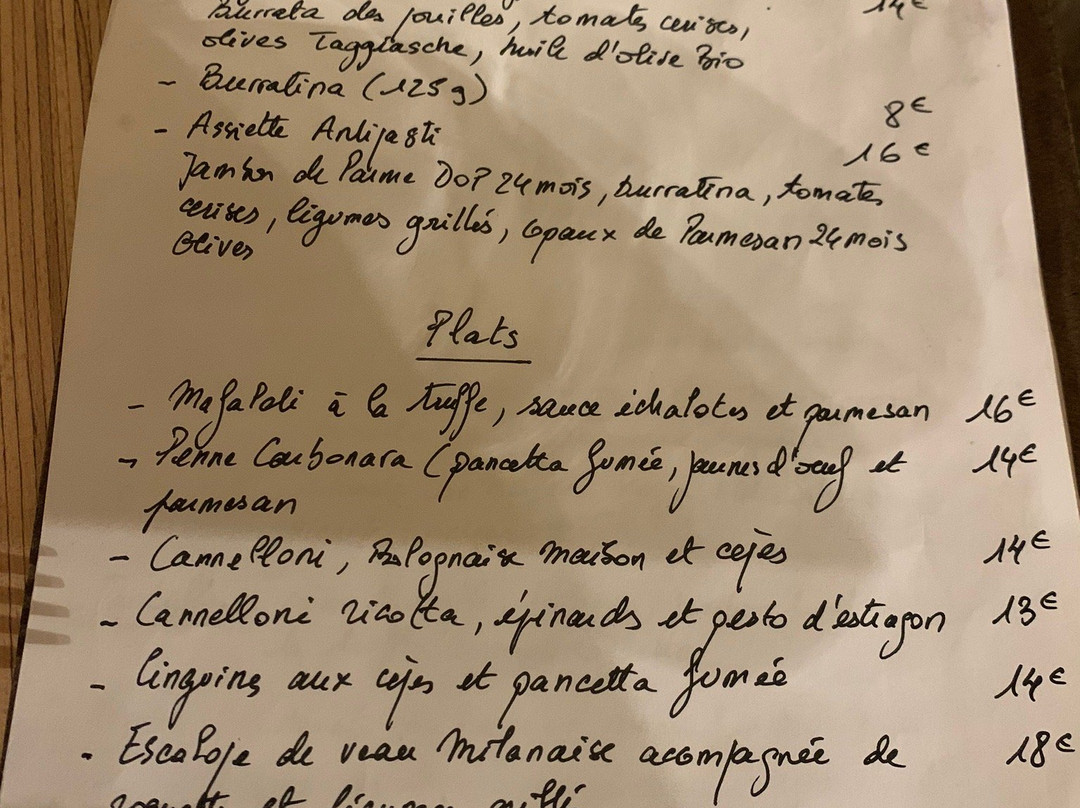 Burrata des pouilles, tomates cerises, 14€
olives Taggiasche, huile d'olive Bio
- Burratina (125g) 8€
- Assiette Antipasti 16€
Jambon de Parme DOP 24 mois, burratina, tomates
cerises, légumes grillés, copaux de Parmesan 24 mois
Olives
Plats
- Mafaldi à la truffe, sauce échalotes et parmesan 16€
- Penne Carbonara (pancetta fumée, jaunes d'oeuf et 14€
parmesan
- Cannelloni, Bolognaise maison et cèpes 14€
- Cannelloni ricotta, épinards et pesto d'estragon 13€
- linguine aux cèpes et pancetta fumée 14€
- Escalope de veau Milanaise acompagnée de 18€
roquette et légumes grillé